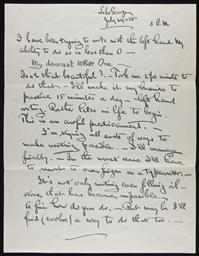 July 29 –
3 P.M.
I have been trying to write with the left hand. My
ability to do so is less than 0 —
My dearest One —
Isn't that beautiful? – Took me 2½ minutes to
do that – I'll make it my business to
practice 15 minutes a day – left hand
writing. Rather late in life to begin.
This is an awful predicament. —
I'm trying all sorts of ways to
make writing possible. – I'll manage
finally. – In the worst case I'll have
to resort to
a Typewriter. –
It's not only writing, even filling
has become impossible
A fine how do you do. — But maybe I'll
find (evolve) a way to do that too. — –